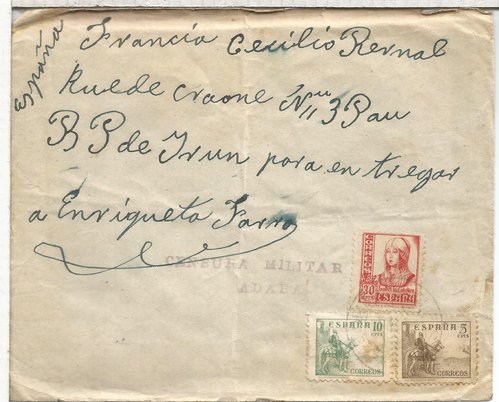 España
Francia Cecilio Bernal
Ruede Craone Nu 3 Pau
B P de Irun para en tregar
a Enriqueta Farro
CENSURA MILITAR
CORREOS
30
ESPAÑA
ESPAÑA 10
CTS
CORREOS
ESPAÑA 5
CTS
CORREOS